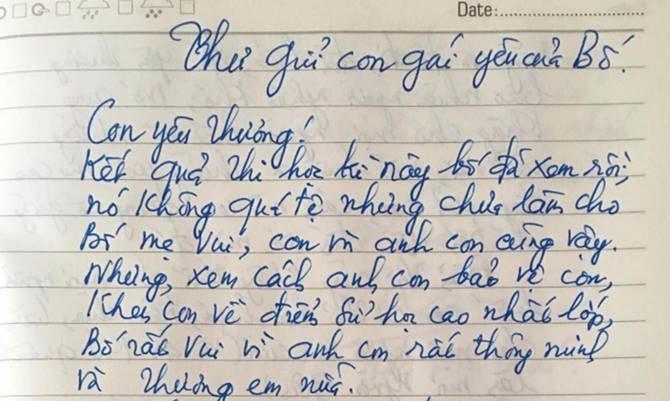 Date:
Thư gửi con gái yêu của Bố.
Con yêu thương!
Kết quả thi học kì này bố đã xem rồi,
nó không quá tệ nhưng chưa làm cho
Bố mẹ vui, con và anh con cũng vậy.
Nhưng, xem cách anh con bảo vệ con,
Khen con về điểm sử học cao nhất lớp,
Bố rất vui vì anh con rất thông minh
và thương em nữa.